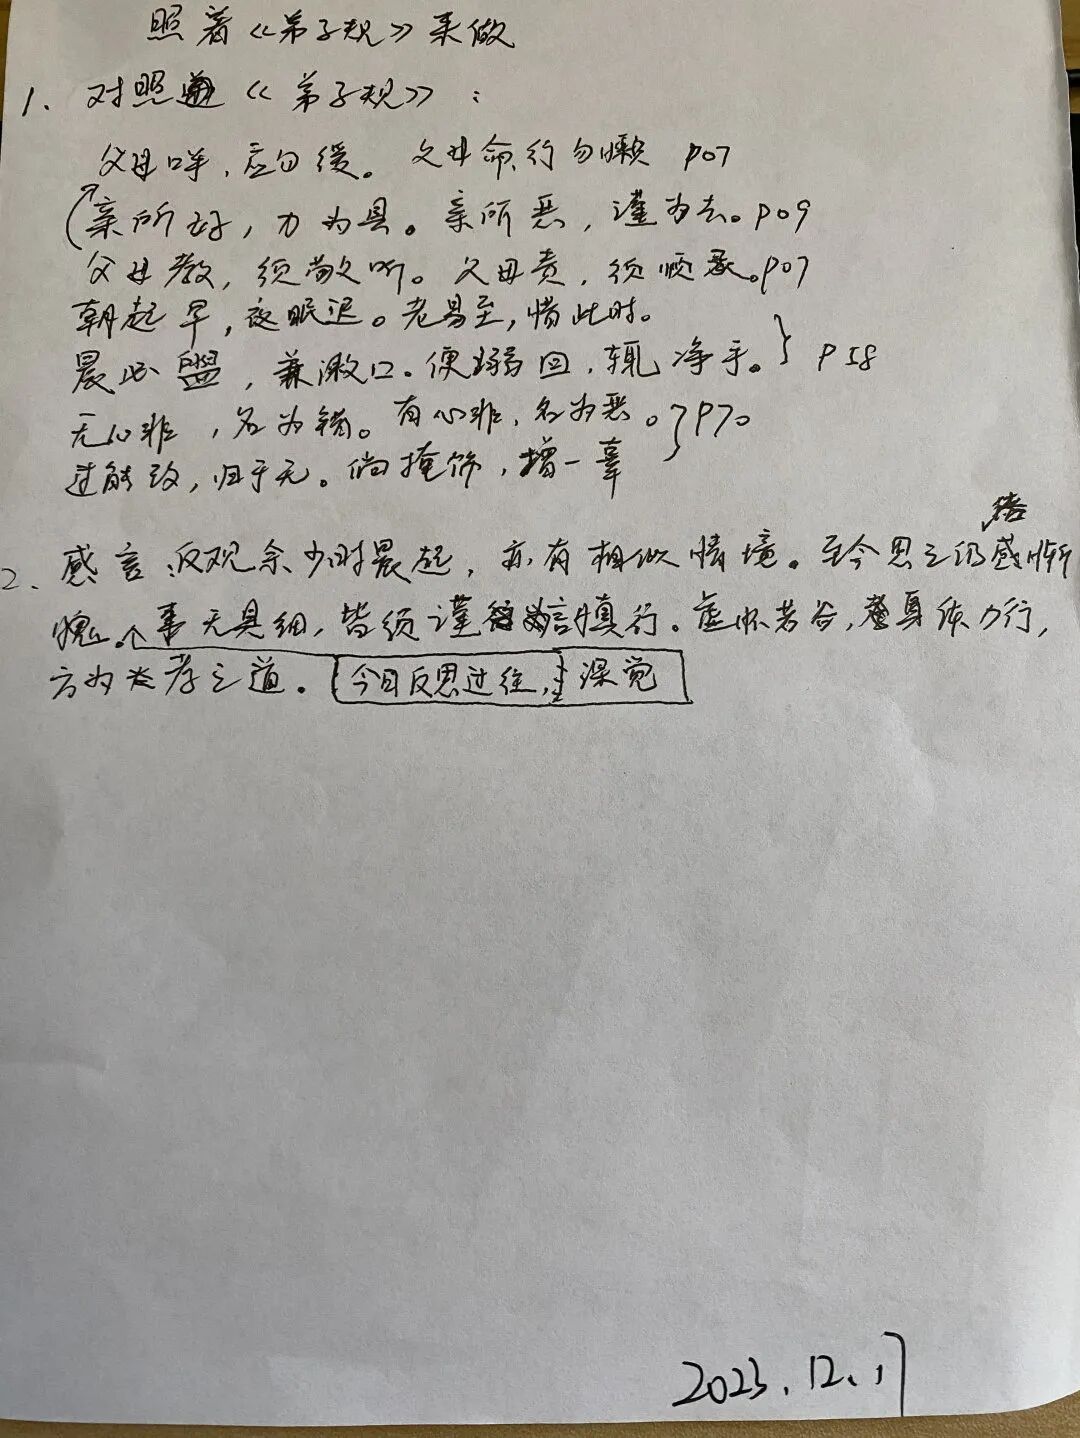 照着《弟子规》来做
1、对照《弟子规》：
父母呼，应勿缓。父母命，行勿懒 P07
亲所好，力为具。亲所恶，谨为去。P09
父母教，须敬听。父母责，须顺承。P07
朝起早，夜眠迟。老易至，惜此时。
晨必盥，兼漱口。便溺回，辄净手。} P58
无心非，名为错。有心非，名为恶。} P70
过能改，归于无。倘掩饰，增一辜
2、感言：反观余少时晨起，亦有相似情境。至今思之仍感惭
愧。事无具细，皆须谨言慎行。虚怀若谷，身体力行，
方为孝之道。今日反思过往，深觉
2023.12.17